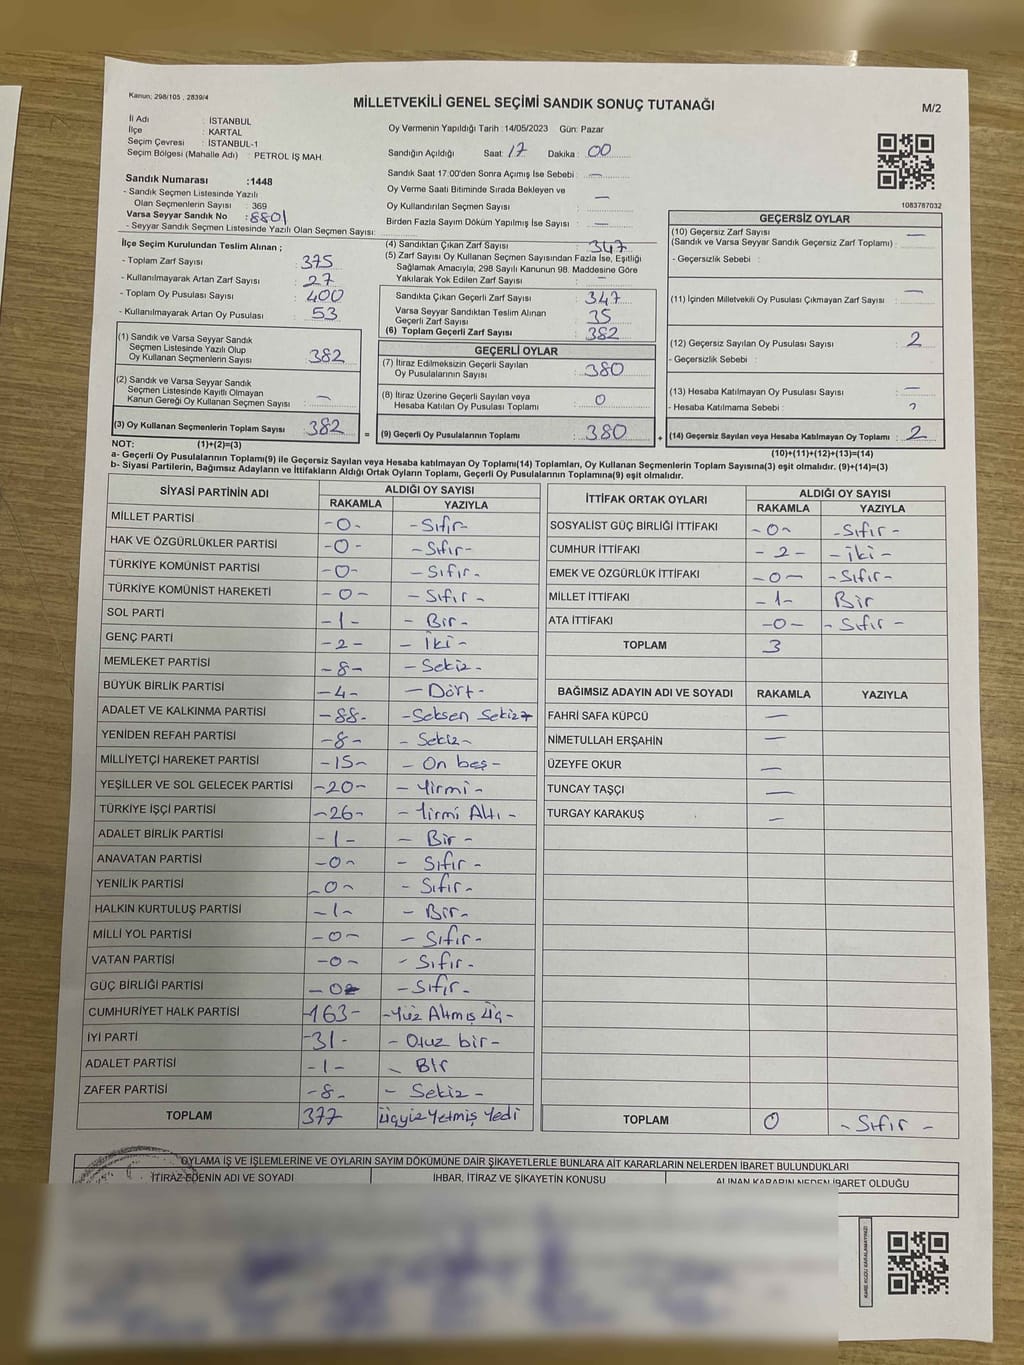 Kanun; 298/105 , 2839/4
MİLLETVEKİLİ GENEL SEÇİMİ SANDIK SONUÇ TUTANAĞI
M/2
İl Adı : İSTANBUL
İlçe : KARTAL
Seçim Çevresi : İSTANBUL-1
Seçim Bölgesi (Mahalle Adı) : PETROL İŞ MAH.
Oy Vermenin Yapıldığı Tarih :14/05/2023 Gün: Pazar
Sandığın Açıldığı Saat: 17 Dakika : 00
Sandık Saat 17:00'den Sonra Açımış İse Sebebi : —
Oy Verme Saati Bitiminde Sırada Bekleyen ve
Oy Kullandırılan Seçmen Sayısı : —
Birden Fazla Sayım Döküm Yapılmış İse Sayısı : —
1083787032
Sandık Numarası :1448
- Sandık Seçmen Listesinde Yazılı
Olan Seçmenlerin Sayısı : 369
Varsa Seyyar Sandık No : 8801
- Seyyar Sandık Seçmen Listesinde Yazılı Olan Seçmen Sayısı:
İlçe Seçim Kurulundan Teslim Alınan ;
- Toplam Zarf Sayısı : 375
- Kullanılmayarak Artan Zarf Sayısı : 27
- Toplam Oy Pusulası Sayısı : 400
- Kullanılmayarak Artan Oy Pusulası : 53
(1) Sandık ve Varsa Seyyar Sandık
Seçmen Listesinde Yazılı Olup
Oy Kullanan Seçmenlerin Sayısı : 382
(2) Sandık ve Varsa Seyyar Sandık
Seçmen Listesinde Kayıtlı Olmayan
Kanun Gereği Oy Kullanan Seçmen Sayısı : —
(3) Oy Kullanan Seçmenlerin Toplam Sayısı : 382
(4) Sandıktan Çıkan Zarf Sayısı : 347
(5) Zarf Sayısı Oy Kullanan Seçmen Sayısından Fazla İse, Eşitliği
Sağlamak Amacıyla, 298 Sayılı Kanunun 98. Maddesine Göre
Yakılarak Yok Edilen Zarf Sayısı : —
Sandıkta Çıkan Geçerli Zarf Sayısı : 347
Varsa Seyyar Sandıktan Teslim Alınan
Geçerli Zarf Sayısı : 35
(6) Toplam Geçerli Zarf Sayısı : 382
GEÇERLİ OYLAR
(7) İtiraz Edilmeksizin Geçerli Sayılan
Oy Pusulalarının Sayısı : 380
(8) İtiraz Üzerine Geçerli Sayılan veya
Hesaba Katılan Oy Pusulası Toplamı : 0
= (9) Geçerli Oy Pusulalarının Toplamı : 380
GEÇERSİZ OYLAR
(10) Geçersiz Zarf Sayısı : —
(Sandık ve Varsa Seyyar Sandık Geçersiz Zarf Toplamı)
- Geçersizlik Sebebi :
(11) İçinden Milletvekili Oy Pusulası Çıkmayan Zarf Sayısı : —
(12) Geçersiz Sayılan Oy Pusulası Sayısı : 2
- Geçersizlik Sebebi :
(13) Hesaba Katılmayan Oy Pusulası Sayısı : —
- Hesaba Katılmama Sebebi :
+ (14) Geçersiz Sayılan veya Hesaba Katılmayan Oy Toplamı : 2
NOT: (1)+(2)=(3)
(10)+(11)+(12)+(13)=(14)
a- Geçerli Oy Pusulalarının Toplamı(9) ile Geçersiz Sayılan veya Hesaba katılmayan Oy Toplamı(14) Toplamları, Oy Kullanan Seçmenlerin Toplam Sayısına(3) eşit olmalıdır. (9)+(14)=(3)
b- Siyasi Partilerin, Bağımsız Adayların ve İttifakların Aldığı Ortak Oyların Toplamı, Geçerli Oy Pusulalarının Toplamına(9) eşit olmalıdır.
SİYASİ PARTİNİN ADI ALDIĞI OY SAYISI
RAKAMLA YAZIYLA
MİLLET PARTİSİ -0- -Sıfır-
HAK VE ÖZGÜRLÜKLER PARTİSİ -0- -Sıfır-
TÜRKİYE KOMÜNİST PARTİSİ -0- -Sıfır-
TÜRKİYE KOMÜNİST HAREKETİ -0- -Sıfır-
SOL PARTİ -1- -Bir-
GENÇ PARTİ -2- -İki-
MEMLEKET PARTİSİ -8- -Sekiz-
BÜYÜK BİRLİK PARTİSİ -4- -Dört-
ADALET VE KALKINMA PARTİSİ -88- -Seksen Sekiz-
YENİDEN REFAH PARTİSİ -8- -Sekiz-
MİLLİYETÇİ HAREKET PARTİSİ -15- -On beş-
YEŞİLLER VE SOL GELECEK PARTİSİ -20- -Yirmi-
TÜRKİYE İŞÇİ PARTİSİ -26- -Yirmi Altı-
ADALET BİRLİK PARTİSİ -1- -Bir-
ANAVATAN PARTİSİ -0- -Sıfır-
YENİLİK PARTİSİ -0- -Sıfır-
HALKIN KURTULUŞ PARTİSİ -1- -Bir-
MİLLİ YOL PARTİSİ -0- -Sıfır-
VATAN PARTİSİ -0- -Sıfır-
GÜÇ BİRLİĞİ PARTİSİ -0- -Sıfır-
CUMHURİYET HALK PARTİSİ -163- -Yüz Altmış Üç-
İYİ PARTİ -31- -Otuz bir-
ADALET PARTİSİ -1- -Bir
ZAFER PARTİSİ -8- -Sekiz-
TOPLAM 377 Üçyüz Yetmiş Yedi
İTTİFAK ORTAK OYLARI ALDIĞI OY SAYISI
RAKAMLA YAZIYLA
SOSYALİST GÜÇ BİRLİĞİ İTTİFAKI -0- -Sıfır-
CUMHUR İTTİFAKI -2- -iki-
EMEK VE ÖZGÜRLÜK İTTİFAKI -0- -Sıfır-
MİLLET İTTİFAKI -1- Bir
ATA İTTİFAKI -0- -Sıfır-
TOPLAM 3
BAĞIMSIZ ADAYIN ADI VE SOYADI RAKAMLA YAZIYLA
FAHRİ SAFA KÜPCÜ —
NİMETULLAH ERŞAHİN —
ÜZEYFE OKUR —
TUNCAY TAŞÇI —
TURGAY KARAKUŞ —
TOPLAM 0 -Sıfır-
OYLAMA İŞ VE İŞLEMLERİNE VE OYLARIN SAYIM DÖKÜMÜNE DAİR ŞİKAYETLERLE BUNLARA AİT KARARLARIN NELERDEN İBARET BULUNDUKLARI
İTİRAZ EDENİN ADI VE SOYADI İHBAR, İTİRAZ VE ŞİKAYETİN KONUSU ALINAN KARARIN NEDEN İBARET OLDUĞU
KARE KODU KARALAMAYINIZ!